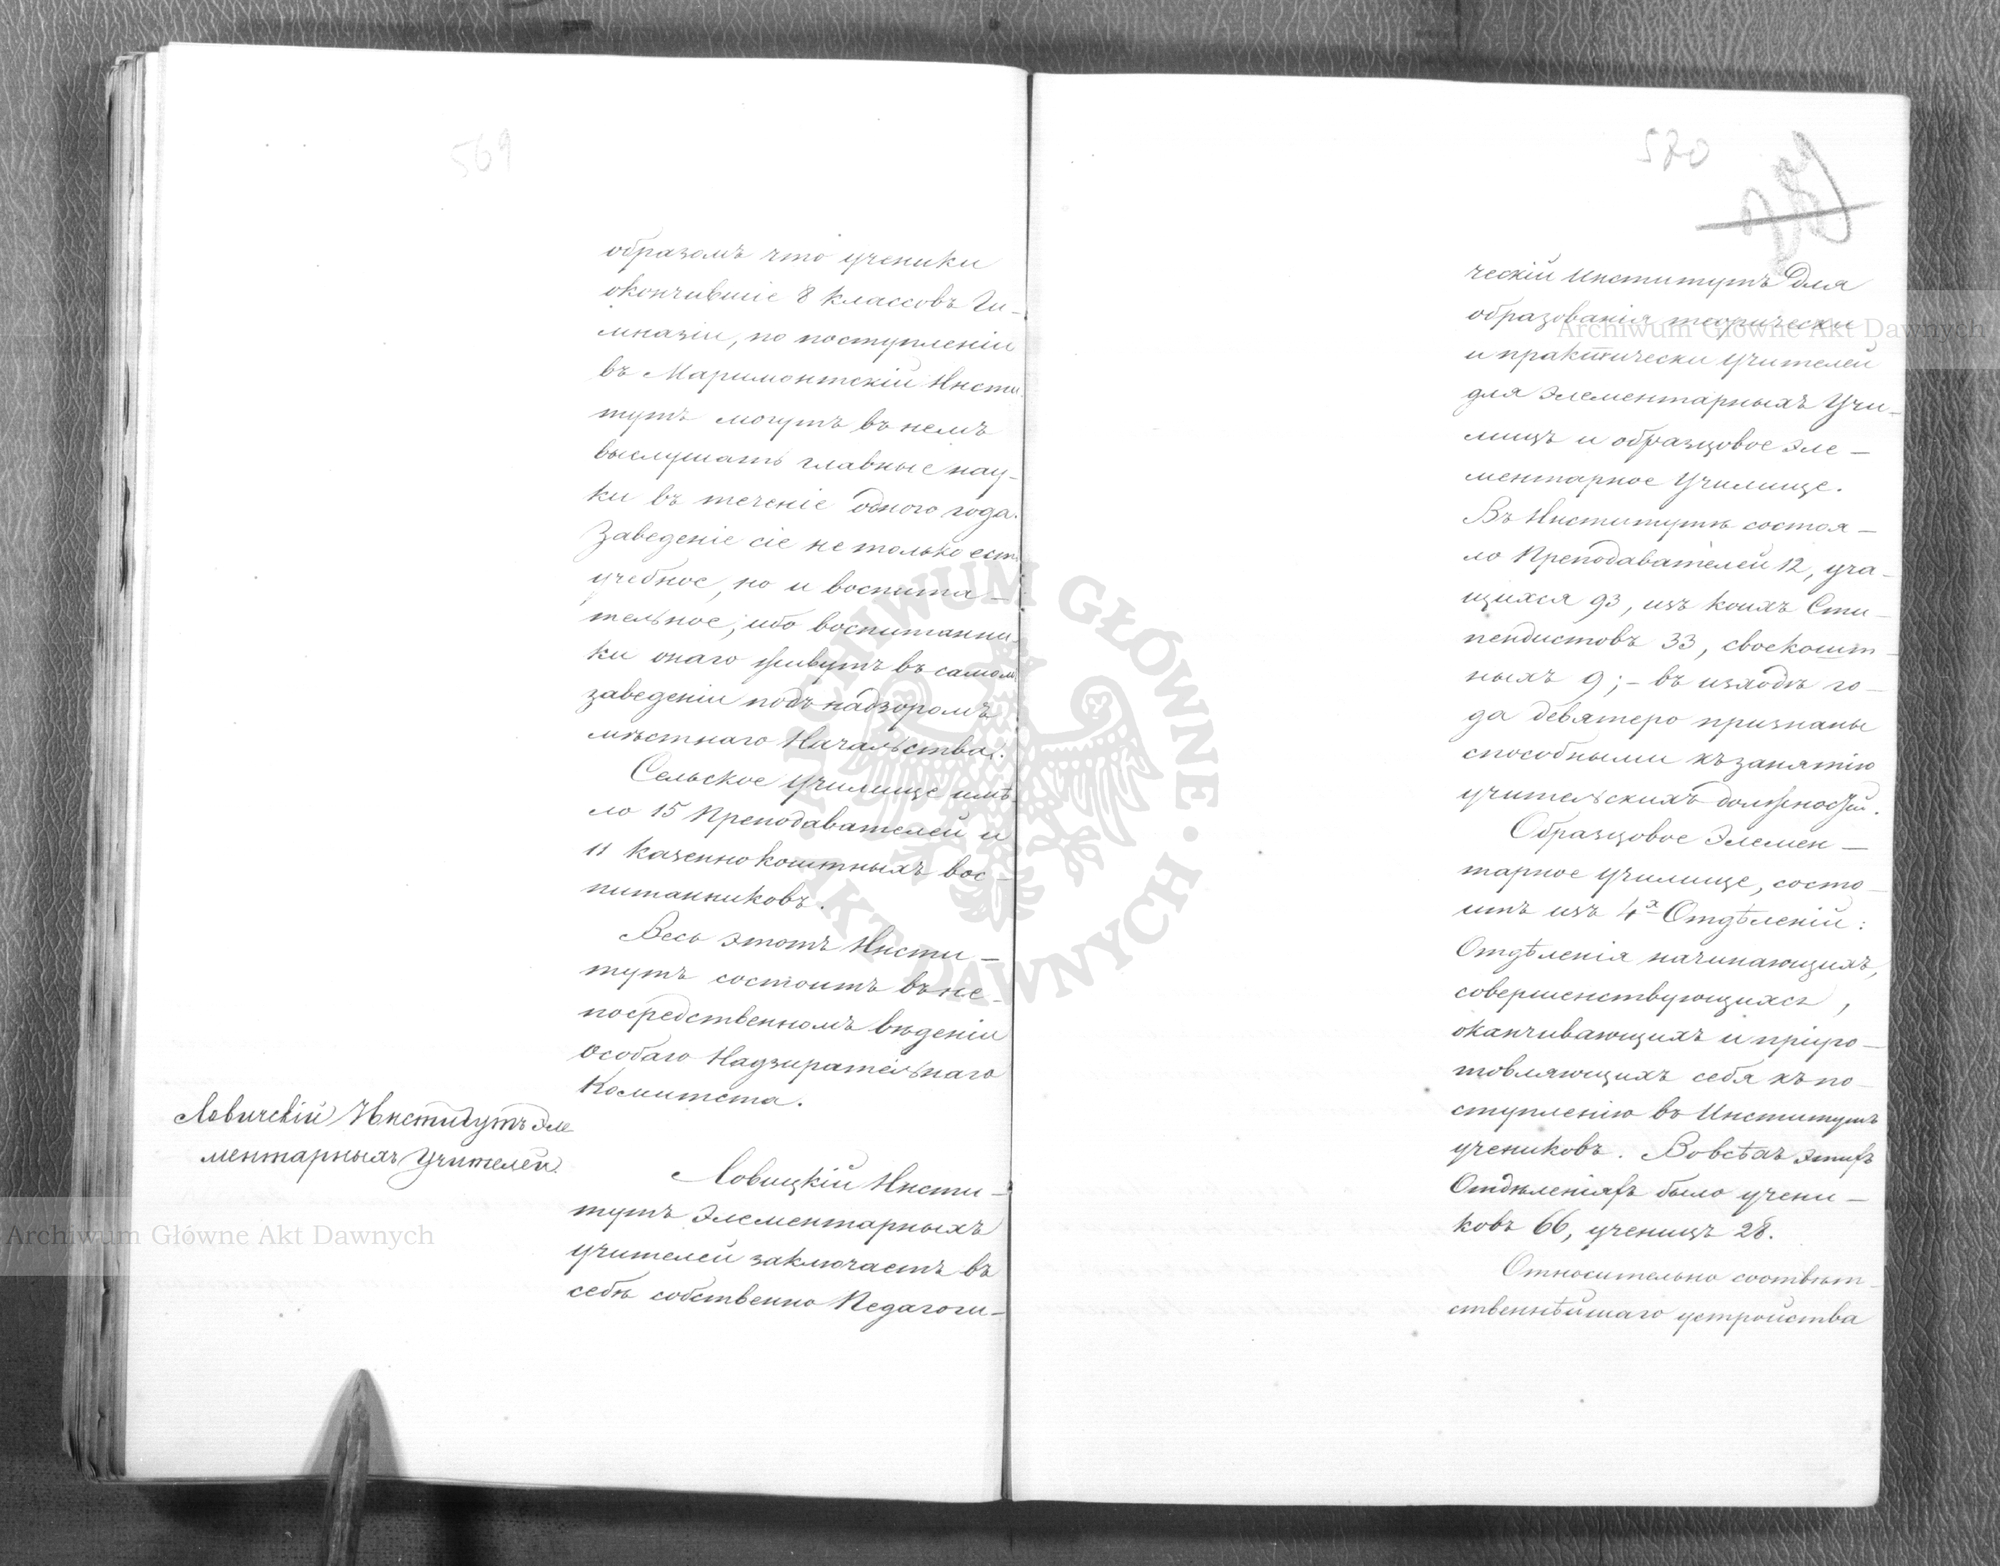 569
образомъ что ученики
окончившіе 8 классовъ Ги-
мназіи, по поступленіи
въ Маримонтскій Инсти-
тутъ могутъ въ немъ
выслушать главные нау-
ки въ теченіе одного года.
Заведеніе сіе не только есть
учебное, но и воспита-
тельное; ибо воспитанни-
ки онаго живутъ въ самомъ
заведеніи подъ надзоромъ
мѣстнаго Начальства.
Сельское Училище имѣ-
ло 15 Преподавателей и
11 казеннокоштныхъ вос-
питанниковъ.
Весь этотъ Инсти-
тутъ состоитъ въ не-
посредственномъ вѣденіи
особаго Надзирательнаго
Комитета.
Ловичскій Институтъ Эле
ментарныхъ Учителей.
Ловицкій Инсти-
тутъ Элементарныхъ
учителей заключаетъ въ
себѣ собственно Педагоги-
570
ческій Институтъ для
образованія теорически
и практически учителей
для Элементарныхъ Учи-
лищъ и образцовое Эле-
ментарное Училище.
Въ Институтѣ состоя-
ло Преподавателей 12, уча-
щихся 93, изъ коихъ Сти-
пендистовъ 33, своекошт-
ныхъ 9; - въ исходѣ го-
да девятеро признаны
способными къ занятію
учительскихъ должностей.
Образцовое Элемен-
тарное Училище, состо-
итъ изъ 4х Отдѣленій:
Отдѣленія начинающихъ,
совершенствующихся,
оканчивающихъ и пріуго-
товляющихъ себя къ по-
ступленію въ Институтъ
учениковъ. Во всѣхъ этихъ
Отдѣленіяхъ было учени-
ковъ 66, ученицъ 28.
Относительно соотвѣт-
ственнѣйшаго устройства
Archiwum Główne Akt Dawnych
Archiwum Główne Akt Dawnych
ARCHIWUM GŁÓWNE AKT DAWNYCH